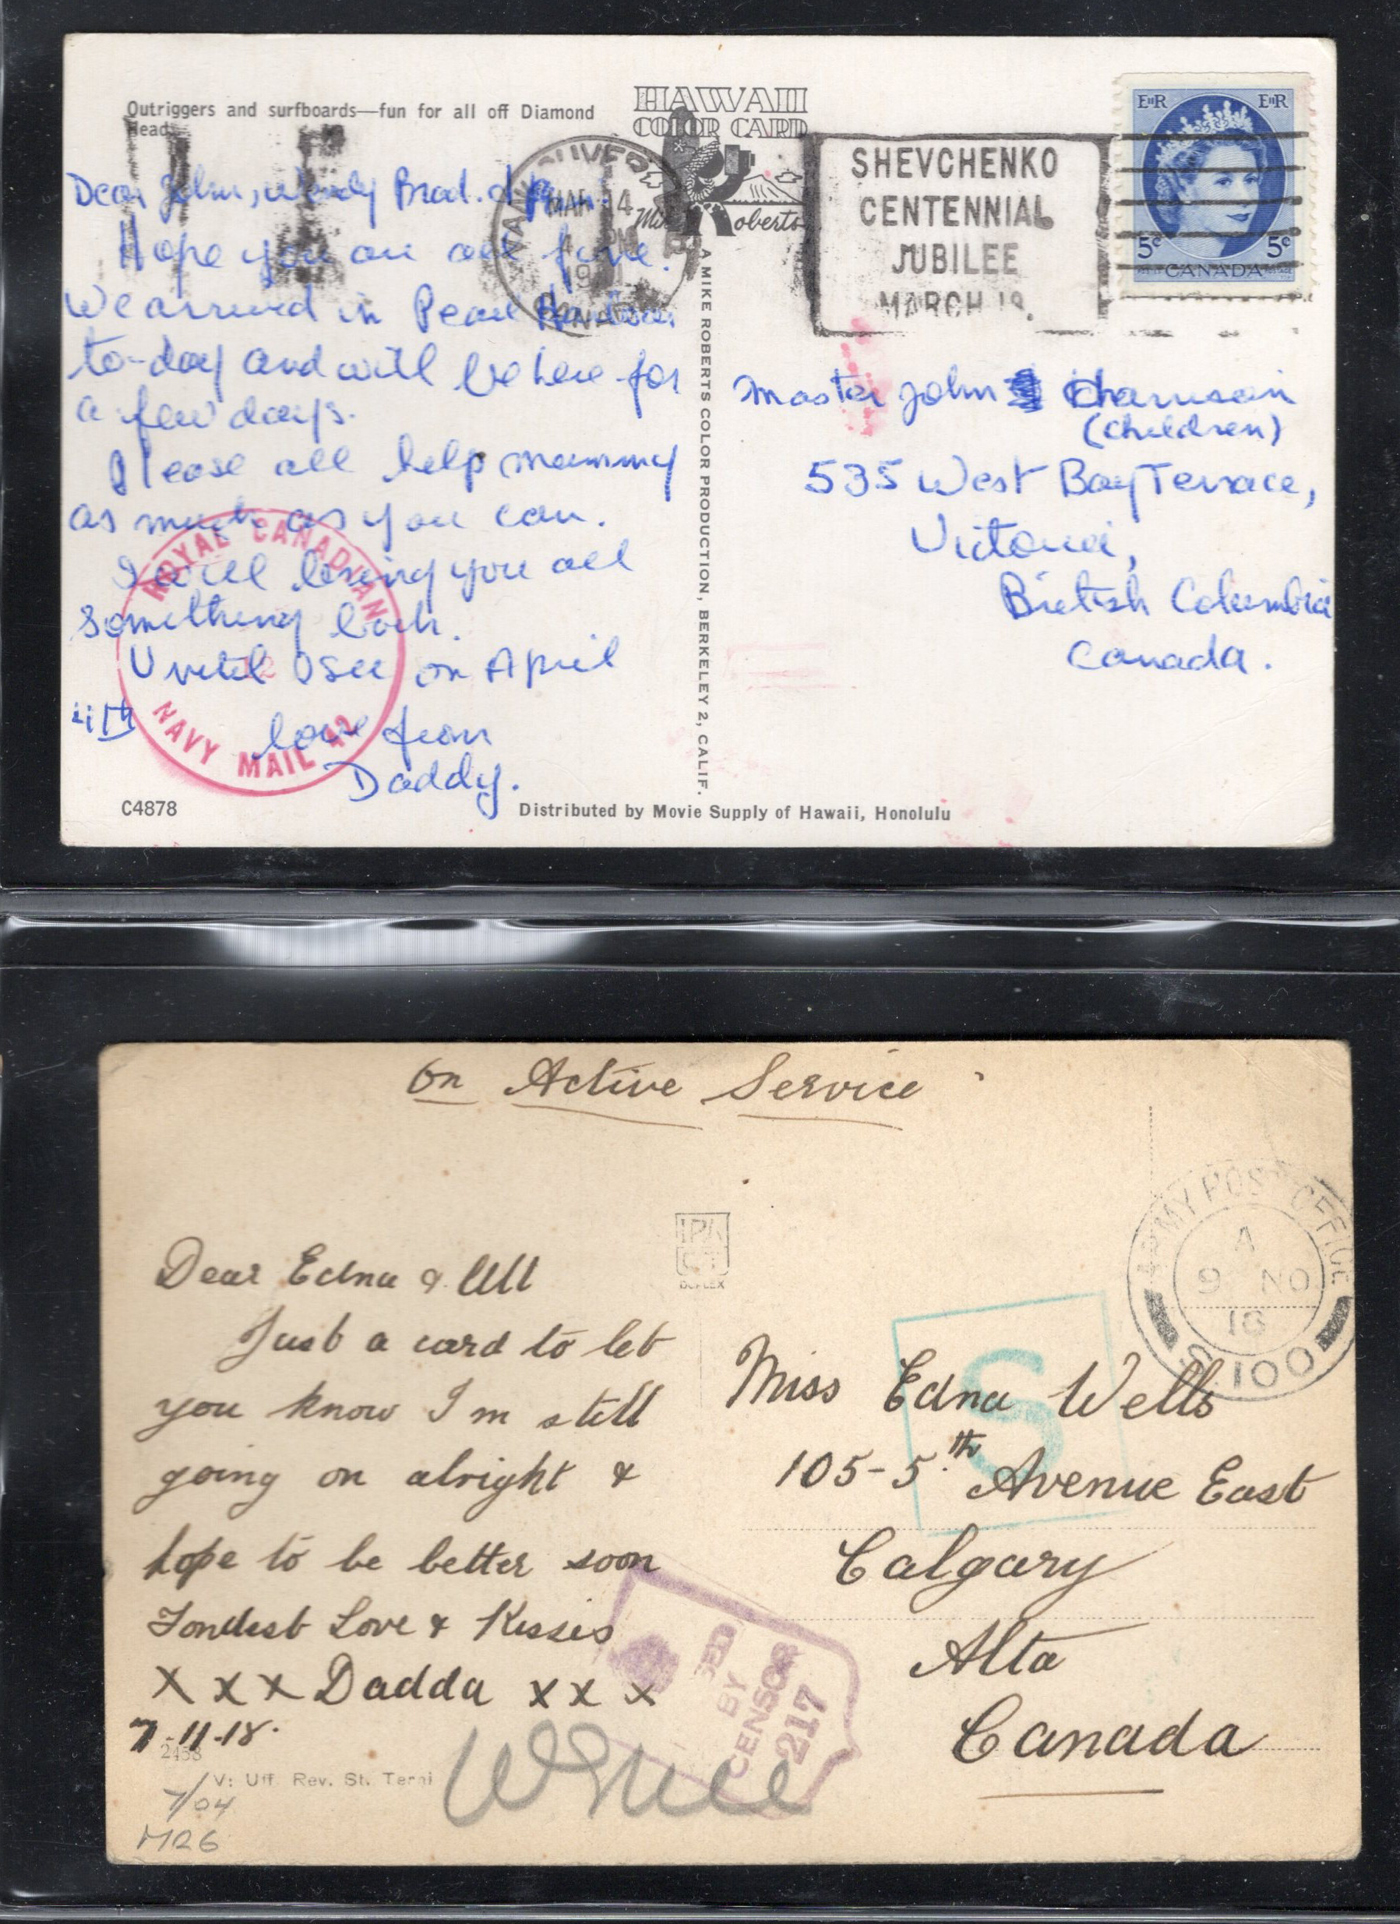 Outriggers and surfboards—fun for all off Diamond
Head.
HAWAII
COLOR CARD
Mike Roberts
Dear John, Wendy Brad. &
Hope you are all fine.
We arrived in Pearl Harbour
to-day and will be here for
a few days.
Please all help mammy
as much as you can.
I will bring you all
something back.
Until I see on April
love from
Daddy.
ROYAL CANADIAN
NAVY MAIL
C4878
Distributed by Movie Supply of Hawaii, Honolulu
A MIKE ROBERTS COLOR PRODUCTION, BERKELEY 2, CALIF.
VANCOUVER
MAR 14
PM
CANADA
SHEVCHENKO
CENTENNIAL
JUBILEE
MARCH 19.
EIIR EIIR
5¢ 5¢
CANADA
Master John Harrison
(children)
535 West Bay Terrace,
Victoria,
British Columbia
Canada.
On Active Service
Dear Edna & All
Just a card to let
you know I'm still
going on alright &
hope to be better soon
Fondest Love & Kisses
x x x Dadda x x x
7-11-18.
2458
V: Uff. Rev. St. Terni
7/04
M26
ARMY POST OFFICE
A
9 NO
18
S.100
S
Miss Edna Wells
105-5th Avenue East
Calgary
Alta
Canada
BY
CENSOR
217